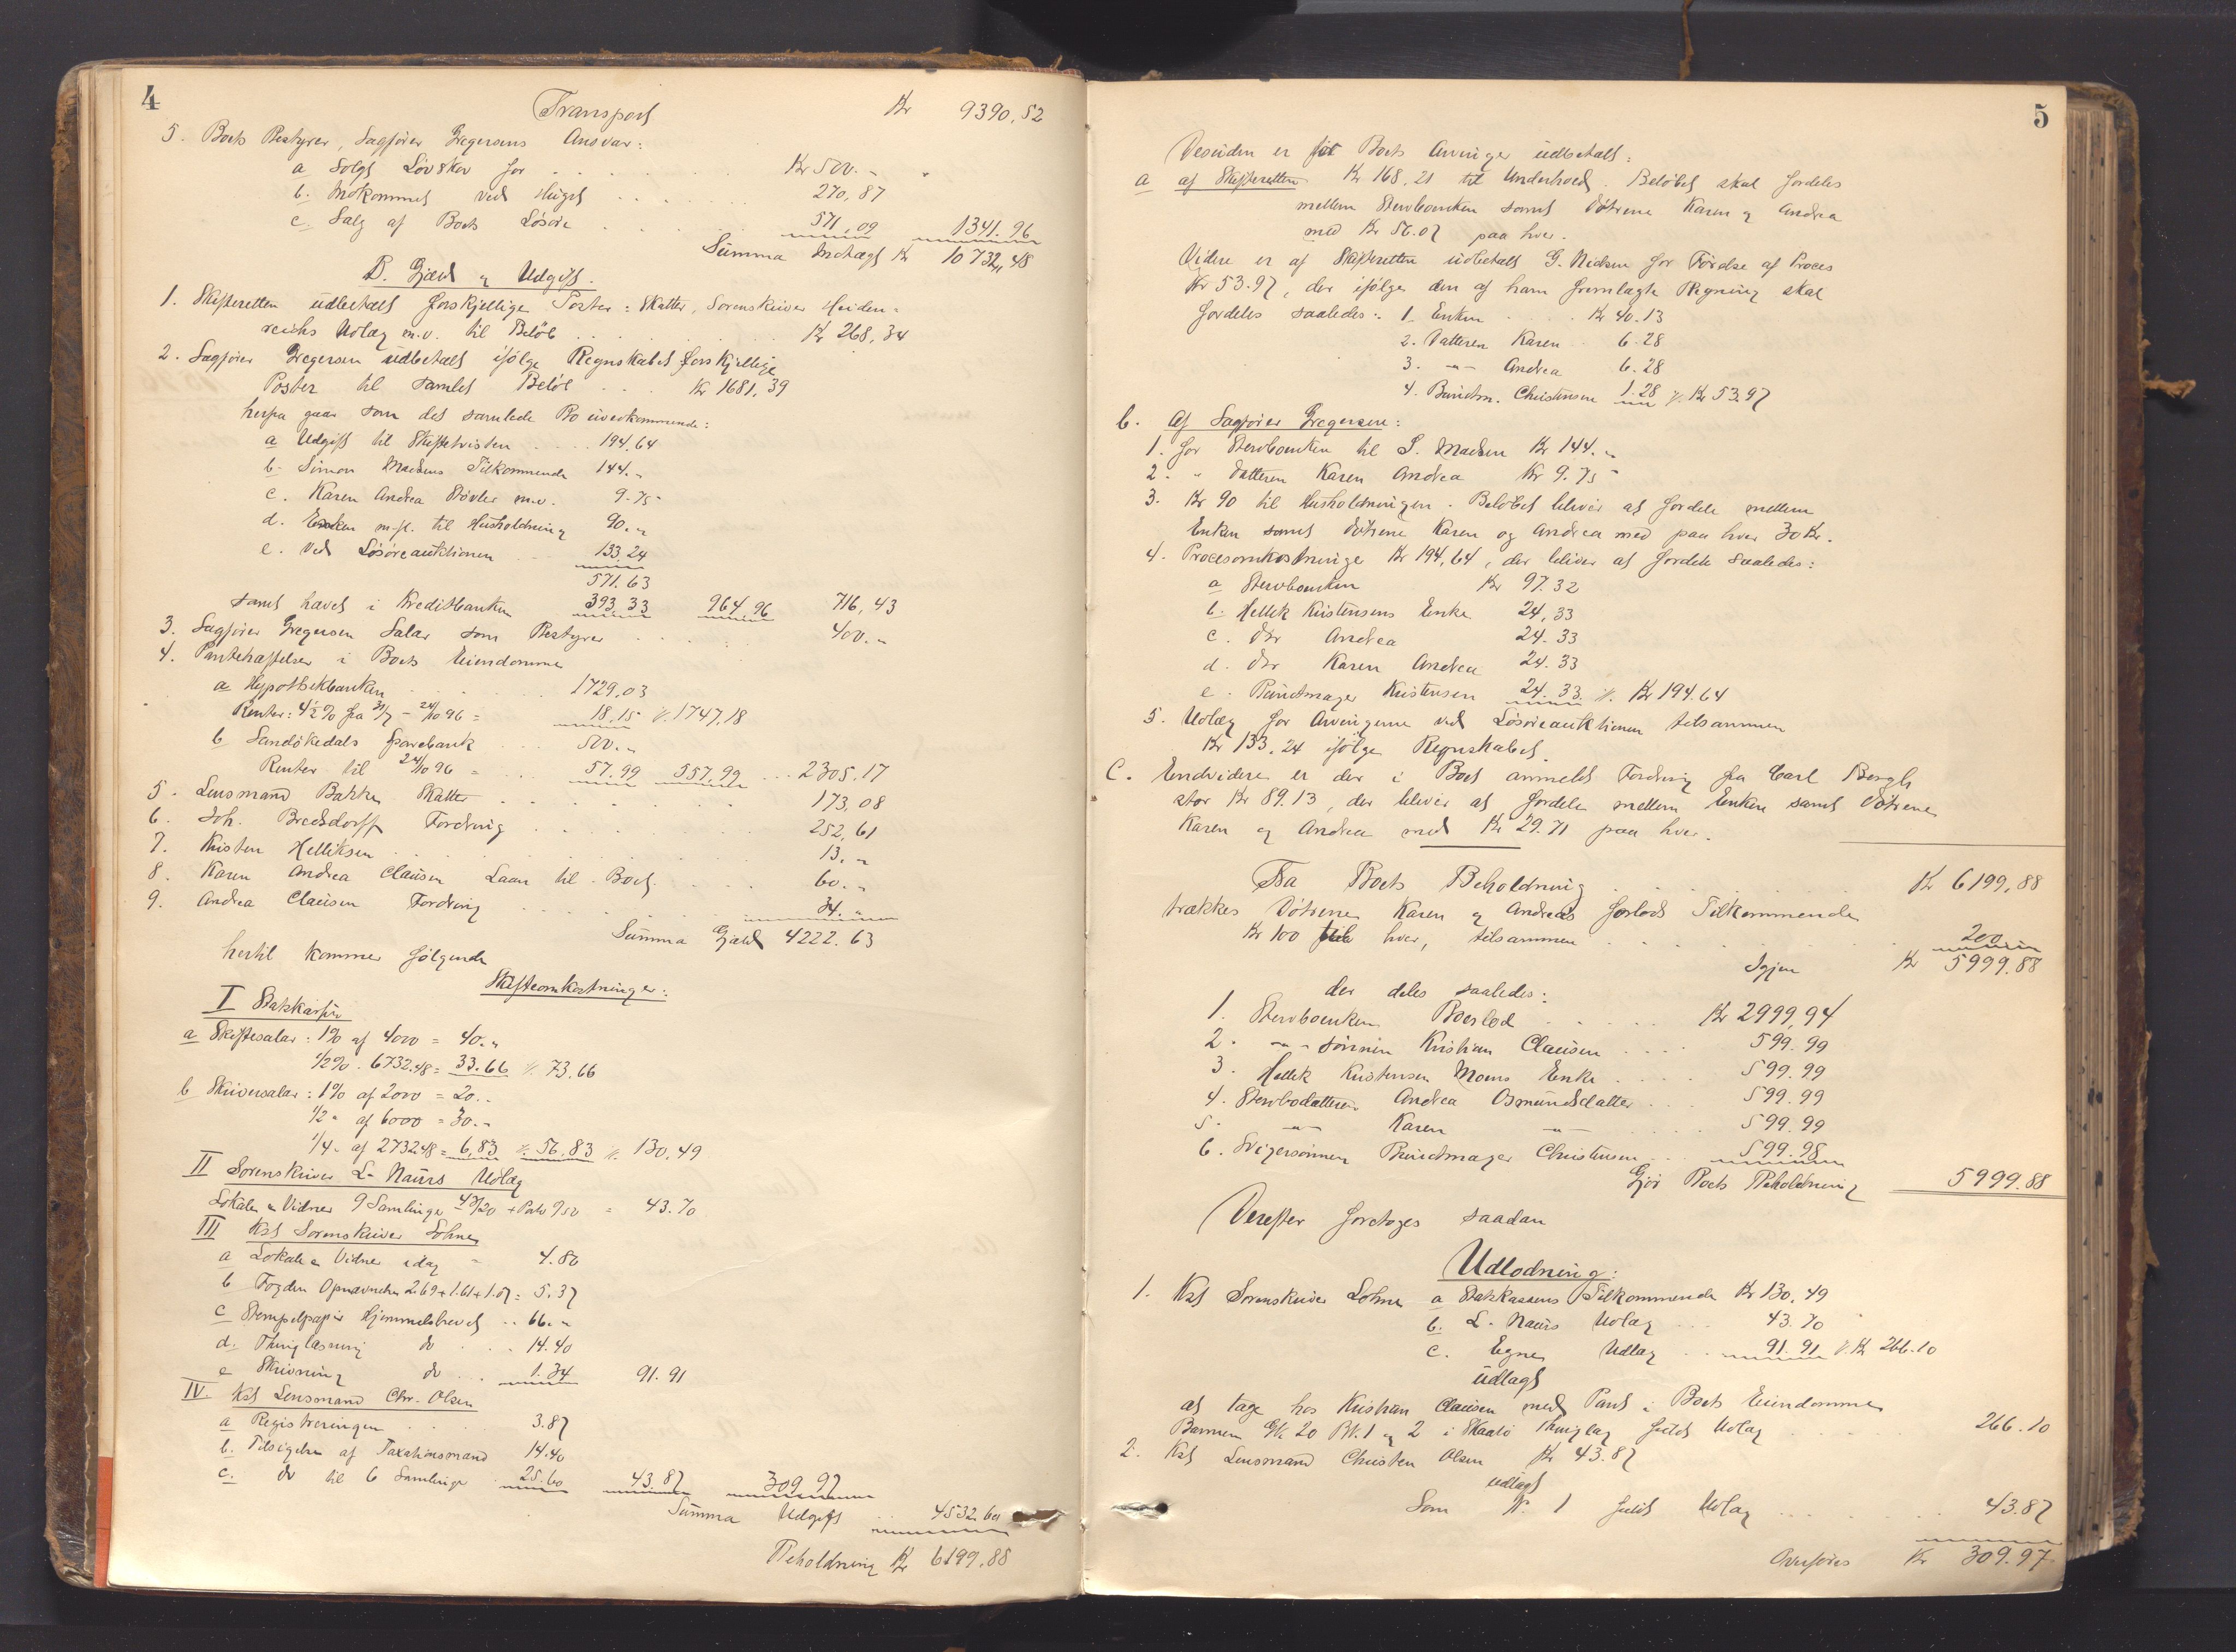 4
Transport Kr 9390,52
5. Boets Bestyrer, Sagfører Gregersens Ansvar:
a Solgt Løvskov for Kr 500.-
b. Indkommet ved Huget 270,87
c. Salg af Boets Løsøre 571,09 1341.96
Summa Indtægt Kr 10732,48
B. Gjæld og Udgift.
1. Skifteretten udbetalt forskjellige Poster: Skatter, Sorenskriver Heiden-
reichs Udlæg m.v. til Beløb Kr 268,34
2. Sagfører Gregersen udbetalt ifølge Regnskabet forskjellige
Poster til samlet Beløb Kr 1681,39
herfra gaar som det samlede Bo uvedkommende:
a Udgift til Skiftetvisten 194,64
b. Simon Madsens Tilkommende 144.-
c. Karen Andrea Støvler m.v. 9.75
d. Enken m.fl. til Husholdning 90.-
e. Ved Løsøreauktionen 133 24
571.63
samt hævet i Kreditbanken 393,33 964,96 716,43
3. Sagfører Gregersen Salær som Bestyrer 400.-
4. Pantehæftelser i Boets Eiendomme
a Hypothekbanken 1729,03
Renter: 4½% fra 31/7 - 24/10 96 = 18.15 ./. 1747,18
b Sandøkedals Sparebank 500.-
Renter til 24/10 96 = 57.99 557,99 2305,17
5. Lensmand Bakken Skatter 173,08
6. Joh. Bredsdorff Fordring 252,61
7. Kristen Helliksen 13.-
8. Karen Andrea Clausen Laan til Boet 60.-
9. Andrea Clausen Fordring 34.-
Summa Gjæld 4222.63
hertil kommer følgende
Skifteomkostninger:
I Statskassen
a Skiftesalær: 1% af 4000 = 40.-
1/2% . 6732.48 = 33.66 ./. 73.66
b Skriversalær: 1% af 2000 = 20.-
1/2 - af 6000 = 30.-
1/4 - af 2732.48 = 6,83 ./. 56,83 ./. 130,49
II Sorenskriver L. Naurs Udlæg
Lokale & Vidner 9 Samlinger = 43.70
III Kst Sorenskriver Lohne
a Lokale & Vidner idag = 4.80
b Fogden Opnævnelse 2.69 + 1.61 + 1.07 = 5.37
c Stempelpapir Hjemmelsbrevet 66.-
d. Thinglæsning do 14.40
e Skrivning do 1.34 91.91
IV. Kst Lensmand Chr. Olsen
a Registreringen 3.87
b. Tilsigelse af Taxationsmænd 14.40
c. do til 6 Samlinger 25.60 43.87 309 97
Summa Udgift 4532.60
Beholdning Kr 6199.88
5
Desuden er Boets Arvinger udbetalt:
a af Skifteretten Kr 168,21 til Underhold. Beløbet skal fordeles
mellem Stervboenken samt Døtrene Karen og Andrea
med Kr 56.07 paa hver.
Videre er af Skifteretten udbetalt G. Nielsen for Førelse af Proces
Kr 53.97, der ifølge den af ham fremlagte Regning skal
fordeles saaledes: 1. Enken Kr 40.13
2. Datteren Karen 6.28
3. -"- Andrea 6.28
4. Bundtm. Christensen 1.28 ./. Kr 53.97
b. Af Sagfører Gregersen:
1. for Stervboenken til S. Madsen Kr 144.-
2. " Datteren Karen Andrea Kr 9.75
3. Kr 90 til Husholdningen. Beløbet bliver at fordele mellem
Enken samt Døtrene Karen og Andrea med paa hver 30 Kr.
4. Procesomkostninger Kr 194,64, der bliver at fordele saaledes:
a Stervboenken Kr 97.32
b. Hellek Kristensens Enke 24,33
c. Dtr Andrea 24.33
d. Dtr Karen Andrea 24.33
e. Bundtmager Kristensen 24.33 ./. Kr 194.64
5. Udlæg for Arvingerne ved Løsøreauktionen tilsammen
Kr 133,24 ifølge Regnskabet.
C. Endvidere er der i Boet anmeldt Fordring fra Carl Bergh
stor Kr 89.13, der bliver at fordele mellem Enken samt Døtrene
Karen og Andrea med Kr 29.71 paa hver.
Fra Boets Beholdning Kr 6199,88
trækkes Døtrene Karen og Andreas forlods Tilkommende
Kr 100 til hver, tilsammen 200.-
Igjen Kr 5999.88
der deles saaledes:
1. Stervboenken Boeslod Kr 2999,94
2. -"- sønnen Kristian Clausen 599.99
3. Hellek Kristensen Moens Enke 599.99
4. Stervbodatteren Andrea Osmundsdatter 599.99
5. -"- Karen -"- 599.99
6. Svigersønnen Bundtmager Christensen 599.98
Gjør Boets Beholdning 5999.88
Derefter foretoges saadan
Udlodning:
1. Kst Sorenskriver Lohne a Statskassens Tilkommende Kr 130,49
b. L. Naurs Udlæg 43.70
c. Egne Udlæg 91.91 ./. Kr 266.10
udlagt
at tage hos Kristian Clausen med Pant i Boets Eiendomme
Barmen G.N. 20 B.N. 1 og 2 i Skaatø Thinglag fuldt Udlæg 266.10
2. Kst Lensmand Christen Olsen Kr 43.87
udlagt
Som N. 1 fuldt Udlæg 43.87
Overføres Kr 309.97